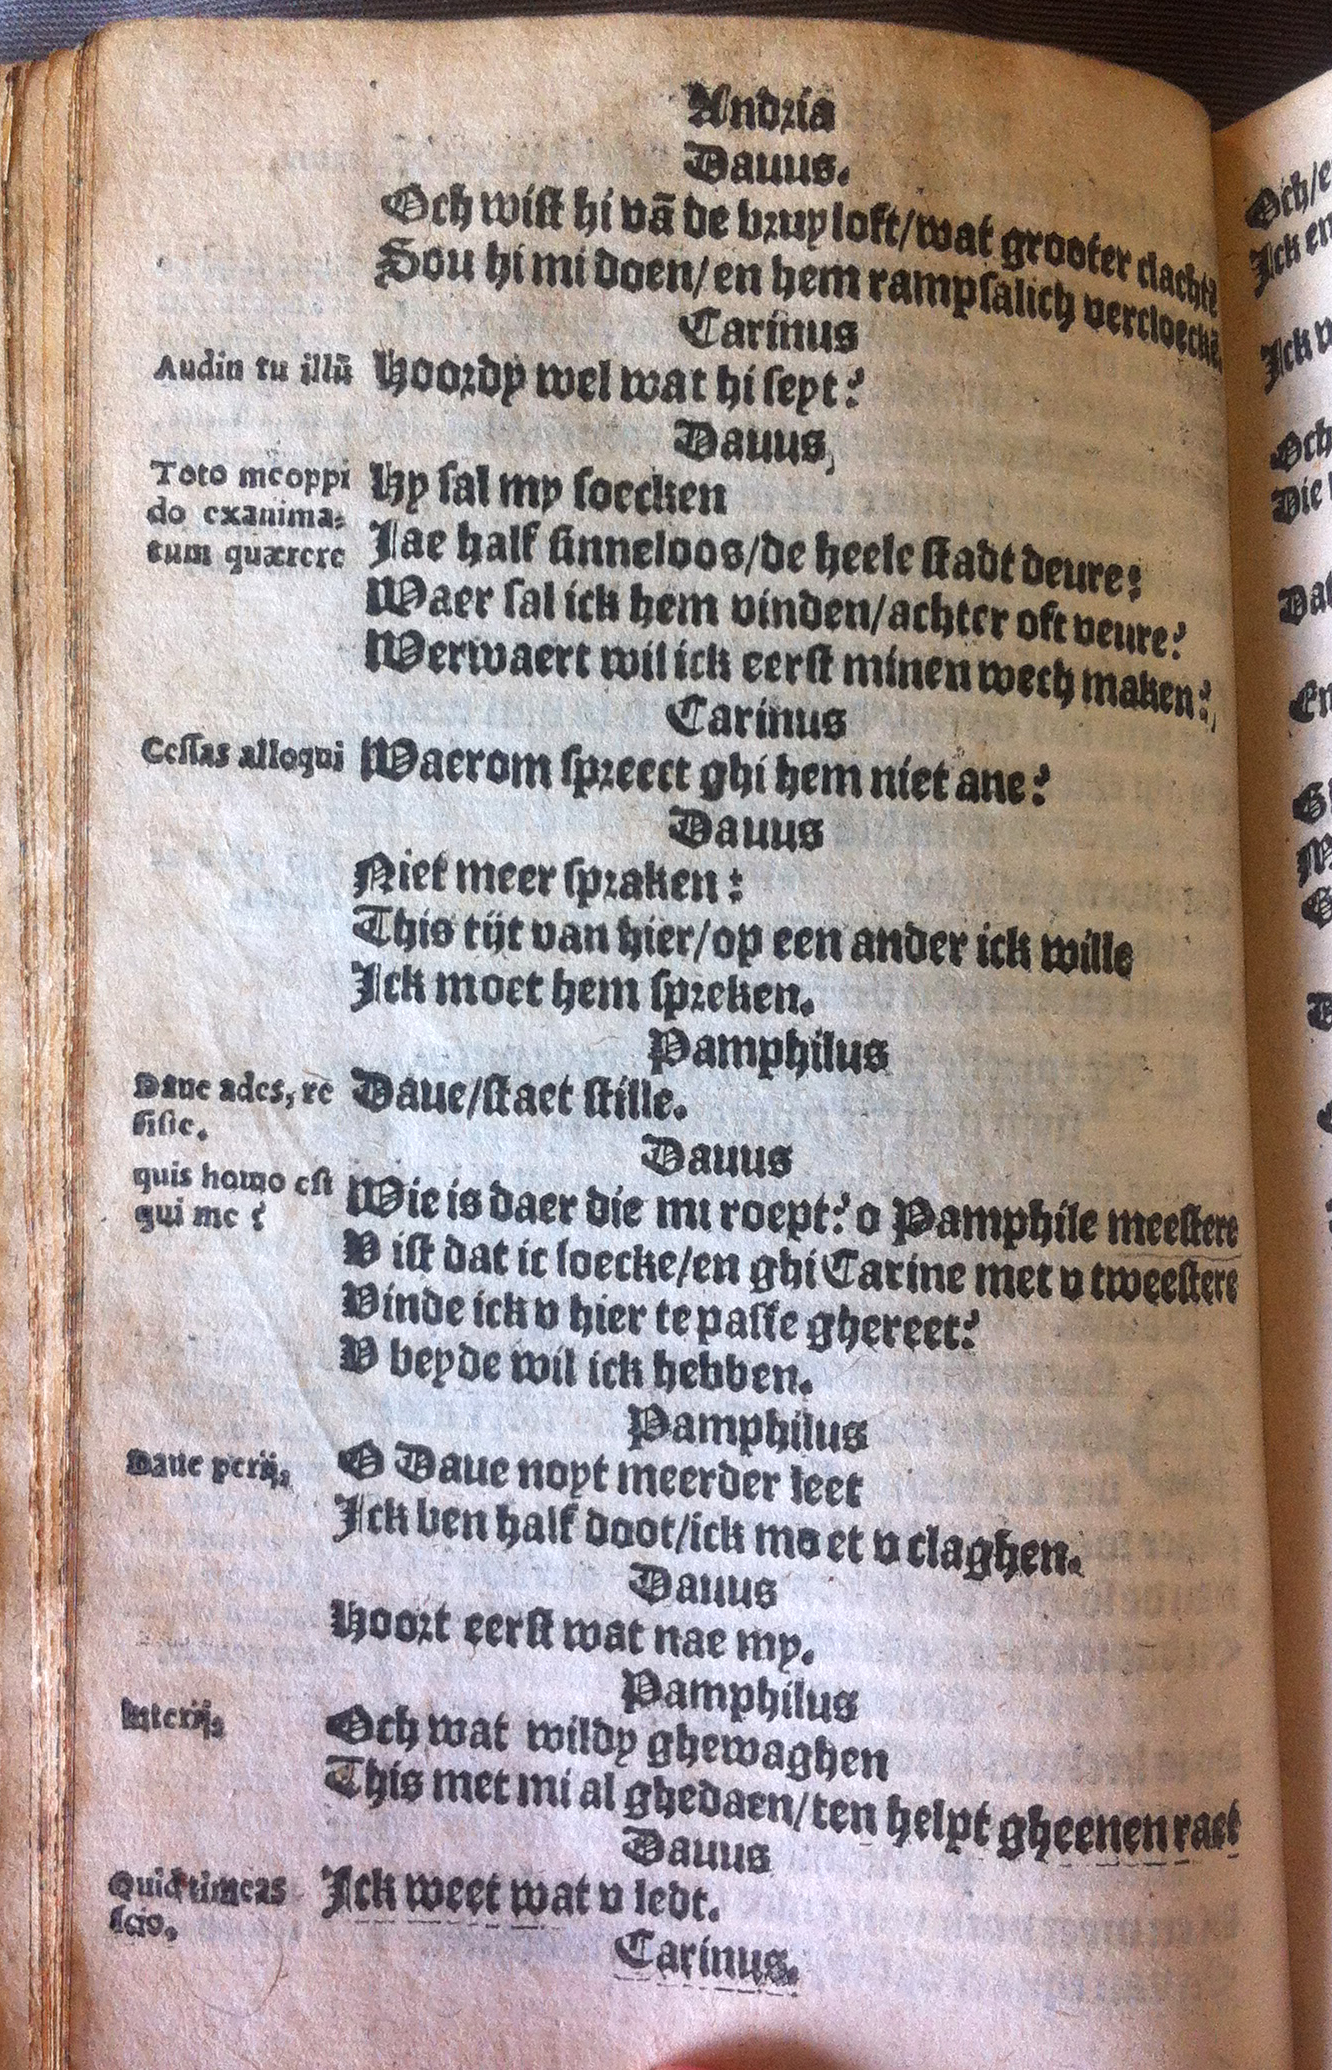 Andria
Dauus.
Och wist hi vā de bruyloft/wat grooter clachtē
Sou hi mi doen/en hem rampsalich vercloeckē.
Carinus
Audin tu illū Hoordy wel wat hi seyt?
Dauus,
Toto me oppi Hy sal my soecken
do exanima- Jae half sinneloos/de heele stadt deure:
tum quærere
Waer sal ick hem vinden/achter oft veure?
Werwaert wil ick eerst minen wech maken?,
Carinus
Cessas alloqui Waerom spreect ghi hem niet ane?
Dauus
Niet meer spraken:
This tijt van hier/op een ander ick wille
Jck moet hem spreken.
Pamphilus
Daue ades, re Daue/staet stille.
siste.
Dauus
quis homo est Wie is daer die mi roept? o Pamphile meestere
qui me ?
V ist dat ic soecke/en ghi Carine met v tweestere
Vinde ick v hier te passe ghereet?
V beyde wil ick hebben.
Pamphilus
Daue perij, O Daue noyt meerder leet
Jck ben half doot/ick moet v claghen.
Dauus
Hoort eerst wat nae my.
Pamphilus
Interij, Och wat wildy ghewaghen
This met mi al ghedaen/ten helpt gheenen raet
Dauus
Quid timeas Jck weet wat v ledt.
scio.
Carinus.
Och/e
Jck en
Jck v
Och
Die
Dat
En